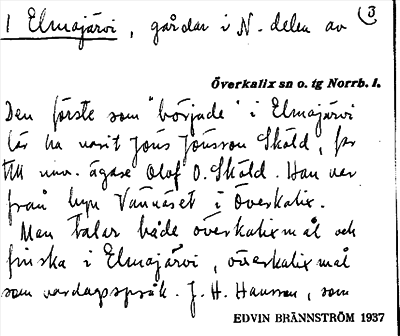 1 Elmajärvi, gårdar i N. delen av (3
Överkalix sn o. tg Norrb. l.
Den förste som "började" i Elmajärvi
lär ha varit Jöns Jönsson Sköld, far
till nuv. ägare Olof O. Sköld. Han var
från byn Vännäset i Överkalix.
Man talar både överkalixmål och
finska i Elmajärvi, överkalixmål
som vardagsspråk. J. H. Hansson, som
EDVIN BRÄNNSTRÖM 1937